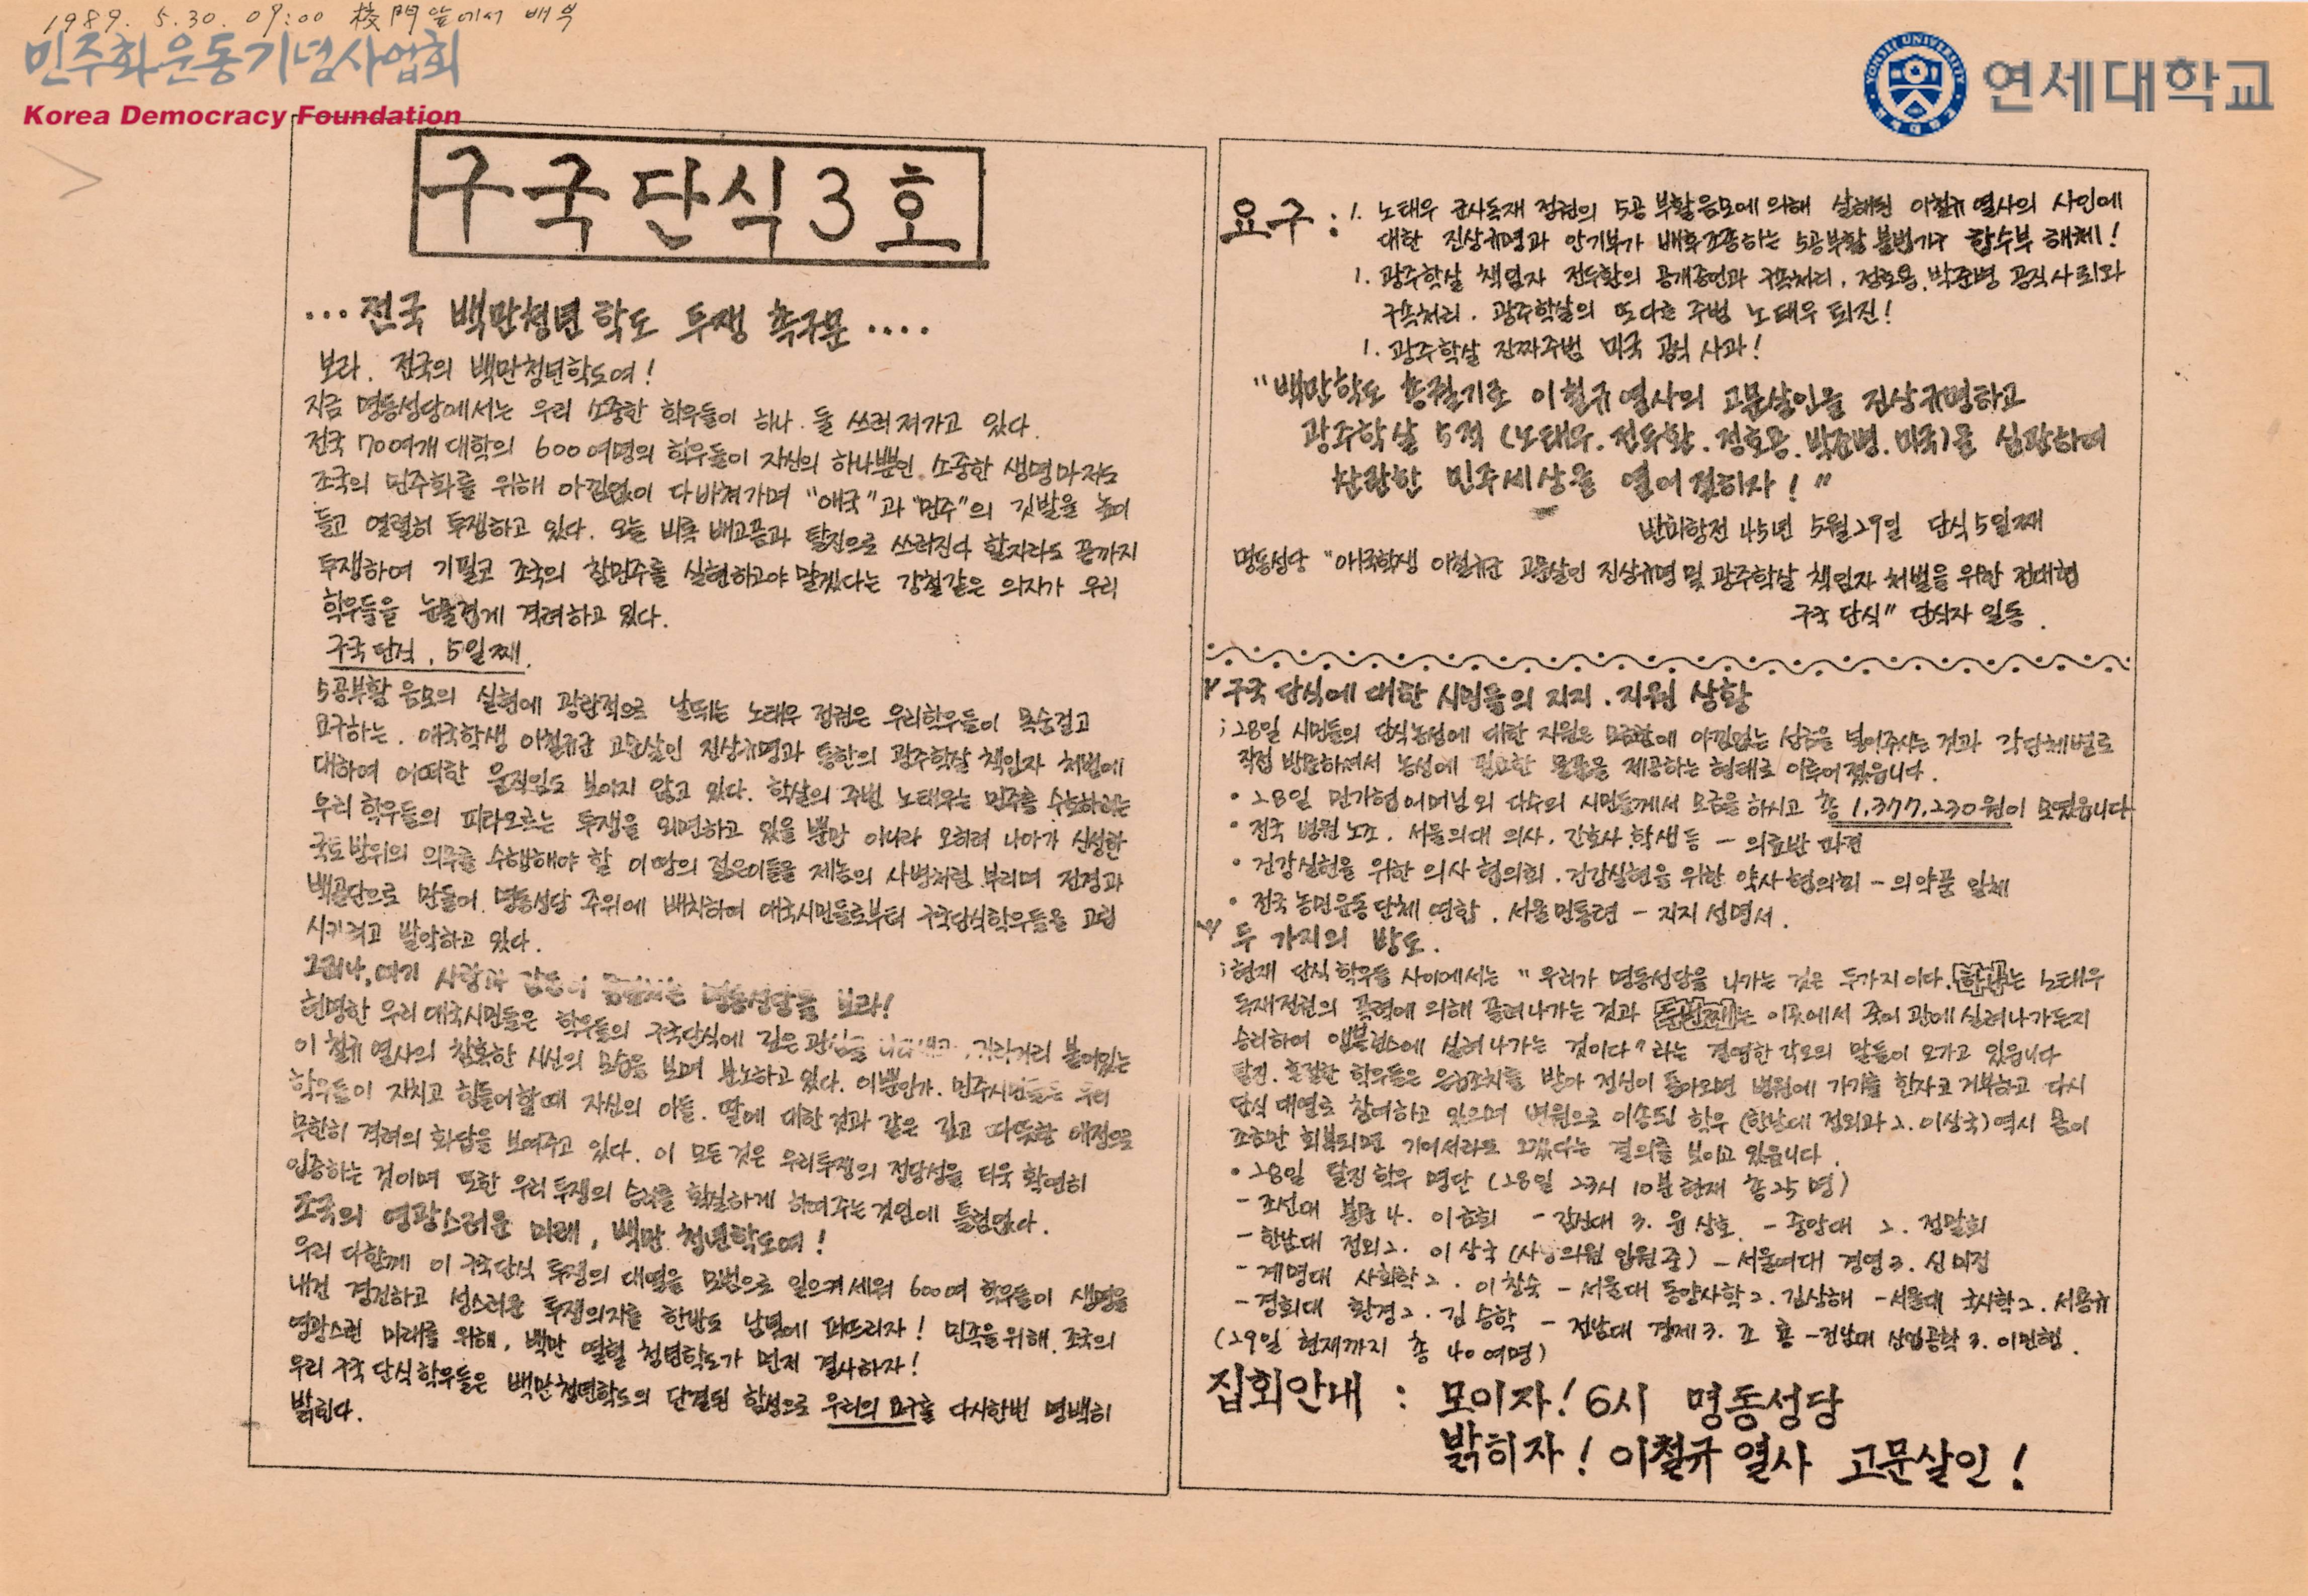 1989. 5. 30. 09:00 校門앞에서 배부
민주화운동기념사업회
Korea Democracy Foundation
연세대학교
구국단식 3호
... 전국 백만청년학도 투쟁 촉구문 ....
보라. 전국의 백만청년학도여!
지금 명동성당에서는 우리 소중한 학우들이 하나. 둘 쓰러져가고 있다.
전국 70여개 대학의 600여명의 학우들이 자신의 하나뿐인 소중한 생명마저도
조국의 민주화를 위해 아낌없이 다 바쳐가며 "애국"과 "민주"의 깃발을 높이
들고 열렬히 투쟁하고 있다. 오늘 비록 배고픔과 탈진으로 쓰러진다 할지라도 끝까지
투쟁하여 기필코 조국의 참민주를 실현하고야 말겠다는 강철같은 의지가 우리
학우들을 눈물겹게 격려하고 있다.
구국단식, 5일째.
5공부활 음모의 실현에 광란적으로 날뛰는 노태우 정권은 우리학우들이 목숨걸고
요구하는. 애국학생 이철규군 고문살인 진상규명과 통한의 광주학살 책임자 처벌에
대하여 어떠한 움직임도 보이지 않고 있다. 학살의 주범 노태우는 민주를 수호하려는
우리 학우들의 피타오르는 투쟁을 외면하고 있을 뿐만 아니라 오히려 나아가 신성한
국토방위의 의무를 수행해야 할 이땅의 젊은이들을 제놈의 사병처럼 부리며 전경과
백골단으로 만들어 명동성당 주위에 배치하여 애국시민들로부터 구국단식학우들을 고립
시키려고 발악하고 있다.
그러나, 여기 사랑과 감동이 명동성당을 보라!
현명한 우리 애국시민들은 학우들의 구국단식에 깊은 관심을 나타내고, 거리거리 붙어있는
이철규 열사의 참혹한 시신의 모습을 보며 분노하고 있다. 이뿐인가. 민주시민들은 우리
학우들이 지치고 힘들어할때 자신의 아들. 딸에 대한 것과 같은 깊고 따뜻한 애정으로
무한히 격려의 화답을 보여주고 있다. 이 모든 것은 우리투쟁의 정당성을 더욱 확연히
입증하는 것이며 또한 우리 투쟁의 승리를 확실하게 하여주는 것임에 틀림없다.
조국의 영광스러운 미래, 백만 청년학도여!
우리 다함께 이 구국단식 투쟁의 대열을 모범으로 일으켜세워 600여 학우들이 생명을
내건 경건하고 성스러운 투쟁의지를 한반도 남녘에 퍼뜨리자! 민족을 위해. 조국의
영광스런 미래를 위해, 백만 열혈 청년학도가 먼저 결사하자!
우리 구국단식학우들은 백만청년학도의 단결된 함성으로 우리의 요구를 다시한번 명백히
밝힌다.
요구 : 1. 노태우 군사독재 정권의 5공 부활음모에 의해 살해된 이철규 열사의 사인에
대한 진상규명과 안기부가 배후조종하는 5공부활 불법기구 합수부 해체!
1. 광주학살 책임자 전두환의 공개증언과 구속처리. 정호용. 박준병 공직사퇴와
구속처리. 광주학살의 또다른 주범 노태우 퇴진!
1. 광주학살 진짜주범 미국 공식 사과!
"백만학도 총궐기로 이철규 열사의 고문살인을 진상규명하고
광주학살 5적 (노태우. 전두환. 정호용. 박준병. 미국)을 심판하여
찬란한 민주세상을 열어 젖히자!"
반미항전 45년 5월 29일 단식 5일째
명동성당 "애국학생 이철규군 고문살인 진상규명 및 광주학살 책임자 처벌을 위한 전대협
구국 단식" 단식자 일동.
구국 단식에 대한 시민들의 지지. 지원 상황
; 28일 시민들의 단식농성에 대한 지원은 모금함에 아낌없는 성금을 넣어주시는 것과 각단체별로
직접 방문하셔서 농성에 필요한 물품을 제공하는 형태로 이루어졌읍니다.
• 28일 민가협 어머님 외 다수의 시민들께서 모금을 하시고 총 1,377,230원이 모였읍니다
• 전국 병원노조. 서울의대 의사. 간호사. 학생등 - 의료반 파견
• 건강실현을 위한 의사협의회. 건강실현을 위한 약사협의회 - 의약품 일체
• 전국 농민운동단체 연합. 서울민통련 - 지지 성명서.
두 가지의 방도.
; 현재 단식 학우들 사이에서는 "우리가 명동성당을 나가는 것은 두가지이다. 하나는 노태우
독재정권의 폭력에 의해 끌려나가는 것과 두번째는 이곳에서 죽어 관에 실려나가든지
승리하여 앰뷸런스에 실려나가는 것이다" 라는 결연한 각오의 말들이 오가고 있읍니다
탈진. 혼절한 학우들은 응급조치를 받아 정신이 돌아오면 병원에 가기를 한사코 거부하고 다시
단식 대열로 참여하고 있으며 병원으로 이송된 학우 (한남대 정외과 2. 이상국) 역시 몸이
조금만 회복되면 기어서라도 오겠다는 결의를 보이고 있읍니다.
• 28일 탈진 학우 명단 (28일 23시 10분 현재 총 25명)
- 조선대 불문 4. 이금희 - 감신대 3. 윤상호. - 중앙대 2. 정말희
- 한남대 정외 2. 이상국 (사랑의원 입원중) - 서울여대 경영 3. 신미정
- 계명대 사회학 2. 이창숙 - 서울대 동양사학 2. 김상해 - 서울대 국사학 2. 서용규
- 경희대 환경 2. 김승학 - 전남대 경제 3. 조 홍 - 전남대 산업공학 3. 이민형.
(29일 현재까지 총 40여명)
집회안내 : 모이자! 6시 명동성당
밝히자! 이철규 열사 고문살인!